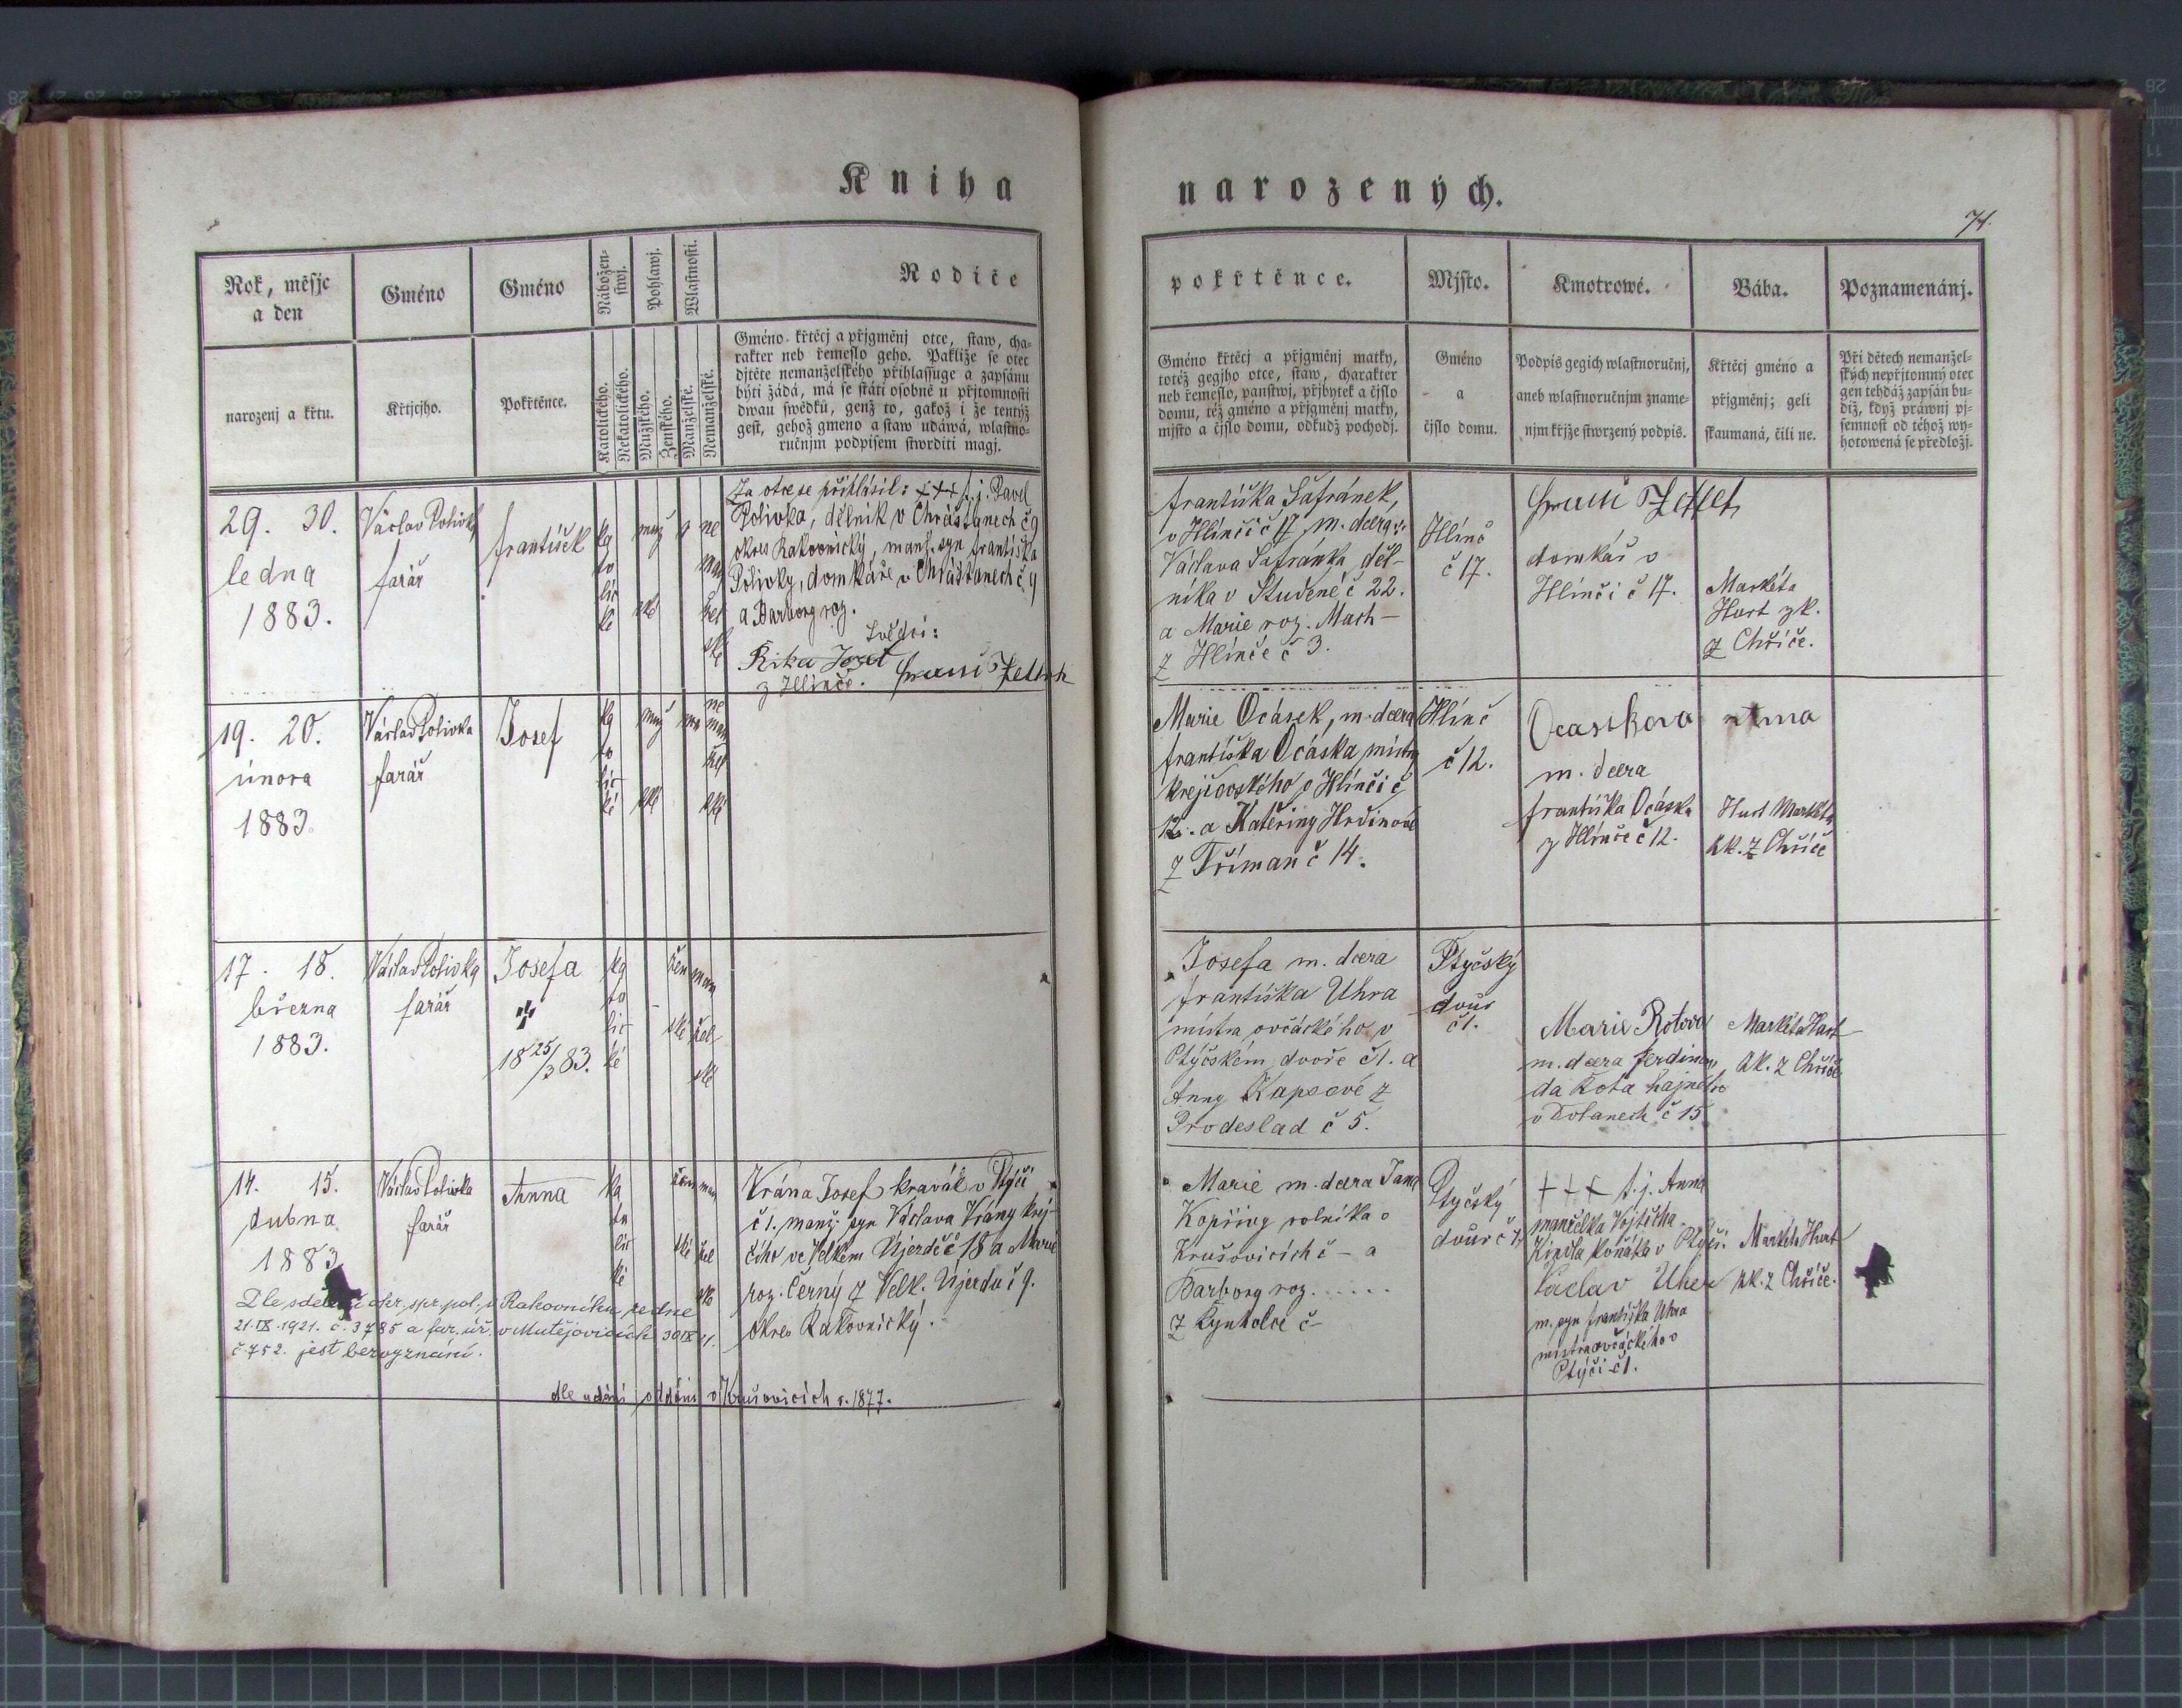 Kniha
Rok, měsjc
a den
Gméno
Gméno
Nábožen-
stwj.
Pohlawj.
Wlastnosti.
Rodiče
narozenj a křtu.
Křtjcjho.
Pokřtěnce.
Katolického.
Nekatolického.
Mužského.
Ženského.
Manželské.
Nemanželské.
Gméno křtěcj a přjgměnj otce, staw, cha-
rakter neb řemeslo geho. Pakliže se otec
djtěte nemanželského přihlassuge a zapsánu
býti žádá, má se státi osobně u přjtomnosti
dwau swědků, genž to, gakož i že tentýž
gest, gehož gmeno a staw udáwá, wlastno-
ručnjm podpisem stwrditi magj.
29. 30.
ledna
1883.
Václav Polivka
farář
František
ka
to
lic
ké
muž
ské
ne
man
žel
ské
Za otce se přihlásil: +++ t.j. Pavel
Polivka, dělník v Chrášťanech č 9
okres Rakovnický, manž. syn Františka
Polivky, domkáře v Chrášťanech č 9
a Barbory roz.
Svědci:
Rika Josef
z Hlinče.
19. 20.
února
1883.
Václav Polivka
farář
Josef
ka
to
lic
ké
muž
ské
ne
man
žel
ské
17. 18.
března
1883.
Václav Polivka
farář
Josefa
18 25/3 83.
ka
to
lic
ké
žen
ské
man
žel
ské
14. 15.
dubna
1883
Václav Polivka
farář
Anna
ka
to
lic
ké
žen
ské
man
žel
ské
Vrána Josef kravák v Ptyči
č 1. manž. syn Václava Vrány krej-
čího ve Velkém Újezdě č 18 a Marie
roz. Černý z Velk. Újezdu č 9.
okres Rakovnický.
Dle sdělení okr. spr. pol. v Rakovníku ze dne
21.IX.1921. č. 3785 a far. úř. v Mutějovicích 30/IX 21.
č. 752. jest bez vyznání.
dle udání oddáni v Krušovicích r. 1877.
narozených.
71.
pokřtěnce.
Mjsto.
Kmotrowé.
Bába.
Poznamenánj.
Gméno křtěcj a přjgměnj matky,
totéž gegjho otce, staw, charakter
neb řemeslo, panstwj, přjbytek a čjslo
domu, též gméno a přjgměnj matky,
mjsto a čjslo domu, odkudž pochodj.
Gméno
a
čjslo domu.
Podpis gegich wlastnoručnj,
aneb wlastnoručnjm zname-
njm křjže stwrzený podpis.
Křtěcj gméno a
přjgměnj; geli
skaumaná, čili ne.
Při dětech nemanžel-
ských nepřjtomný otec
gen tehdáž zapsán bu-
diž, když práwnj pj-
semnost od téhož wy-
hotowená se předložj.
Františka Šafránek,
v Hlinči č 17, m. dcera
Václava Šafránka, děl-
níka v Studené č 22.
a Marie roz. Mach-
z Hlinče č 3.
Hlinč
č 17.
domkář v
Hlinči č 17.
Markéta
Hurt zk.
z Chříče.
Marie Ocásek, m. dcera
Františka Ocáska, mistra
krejčovského v Hlinči č
12. a Kateřiny Hrdinové
z Tříman č 14.
Hlinč
č 12.
Ocaskova
m. dcera
Františka Ocáska
z Hlinče č 12.
Anna
Hurt Markéta
zk. z Chříče
Josefa m. dcera
Františka Uhra
mistra ovčáckého v
Ptyčském dvoře č 1. a
Anny Kapsové z
Prodeslad č 5.
Ptyčský
dvůr
č 1.
Marie Rotova
m. dcera Ferdinan-
da Rota hajného
v Dolanech č 15
Markéta Hurt
zk. z Chříče
Marie m. dcera Jana
Kopřivy rolníka v
Krušovicích č - a
Barbory roz. ......
z Kynholce č-
Ptyčský
dvůr č 1.
+++ t.j. Anna
manželka Vojtěcha
v Ptyči.
Václav Uher
m. syn Františka Uhra
mistra ovčáckého v
Ptyči č 1.
Markéta Hurt
zk. z Chříče.